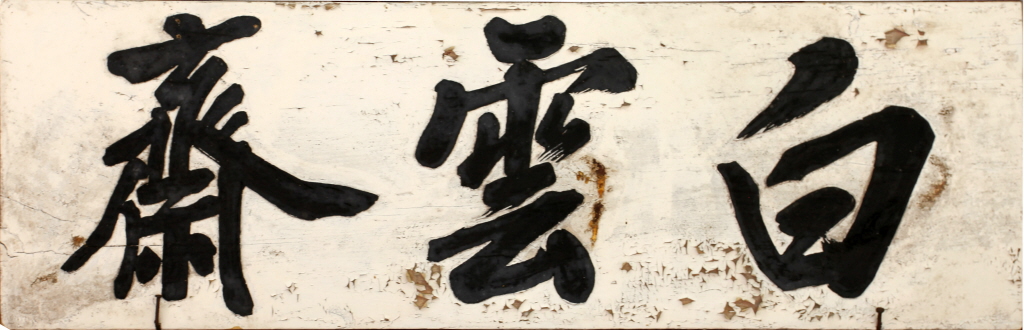 白雲齋